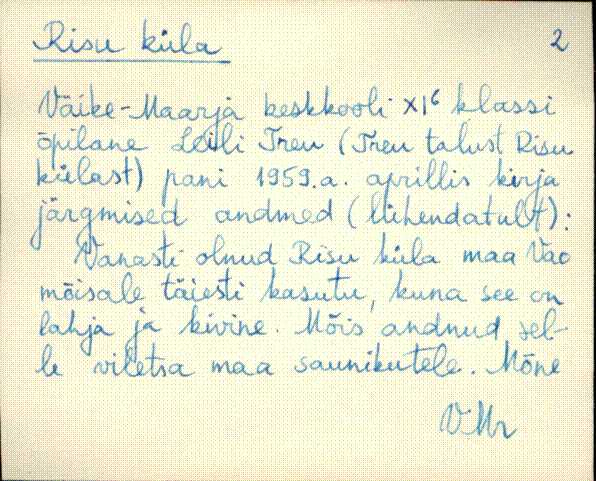 Risu küla
2
Väike-Maarja keskkooli XIb klassi
õpilane Leili Treu (Treu talust Risu
külast) pani 1959.a. aprillis kirja
järgmised andmed (lühendatult):
Vanasti olnud Risu küla maa Vao
mõisale täiesti kasutu, kuna see on
lahja ja kivine. Mõis andnud sel-
le viletsa maa saunikutele. Mõne